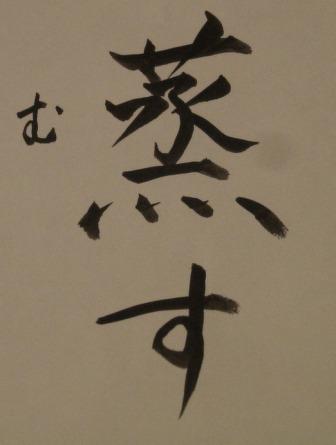 蒸す
む